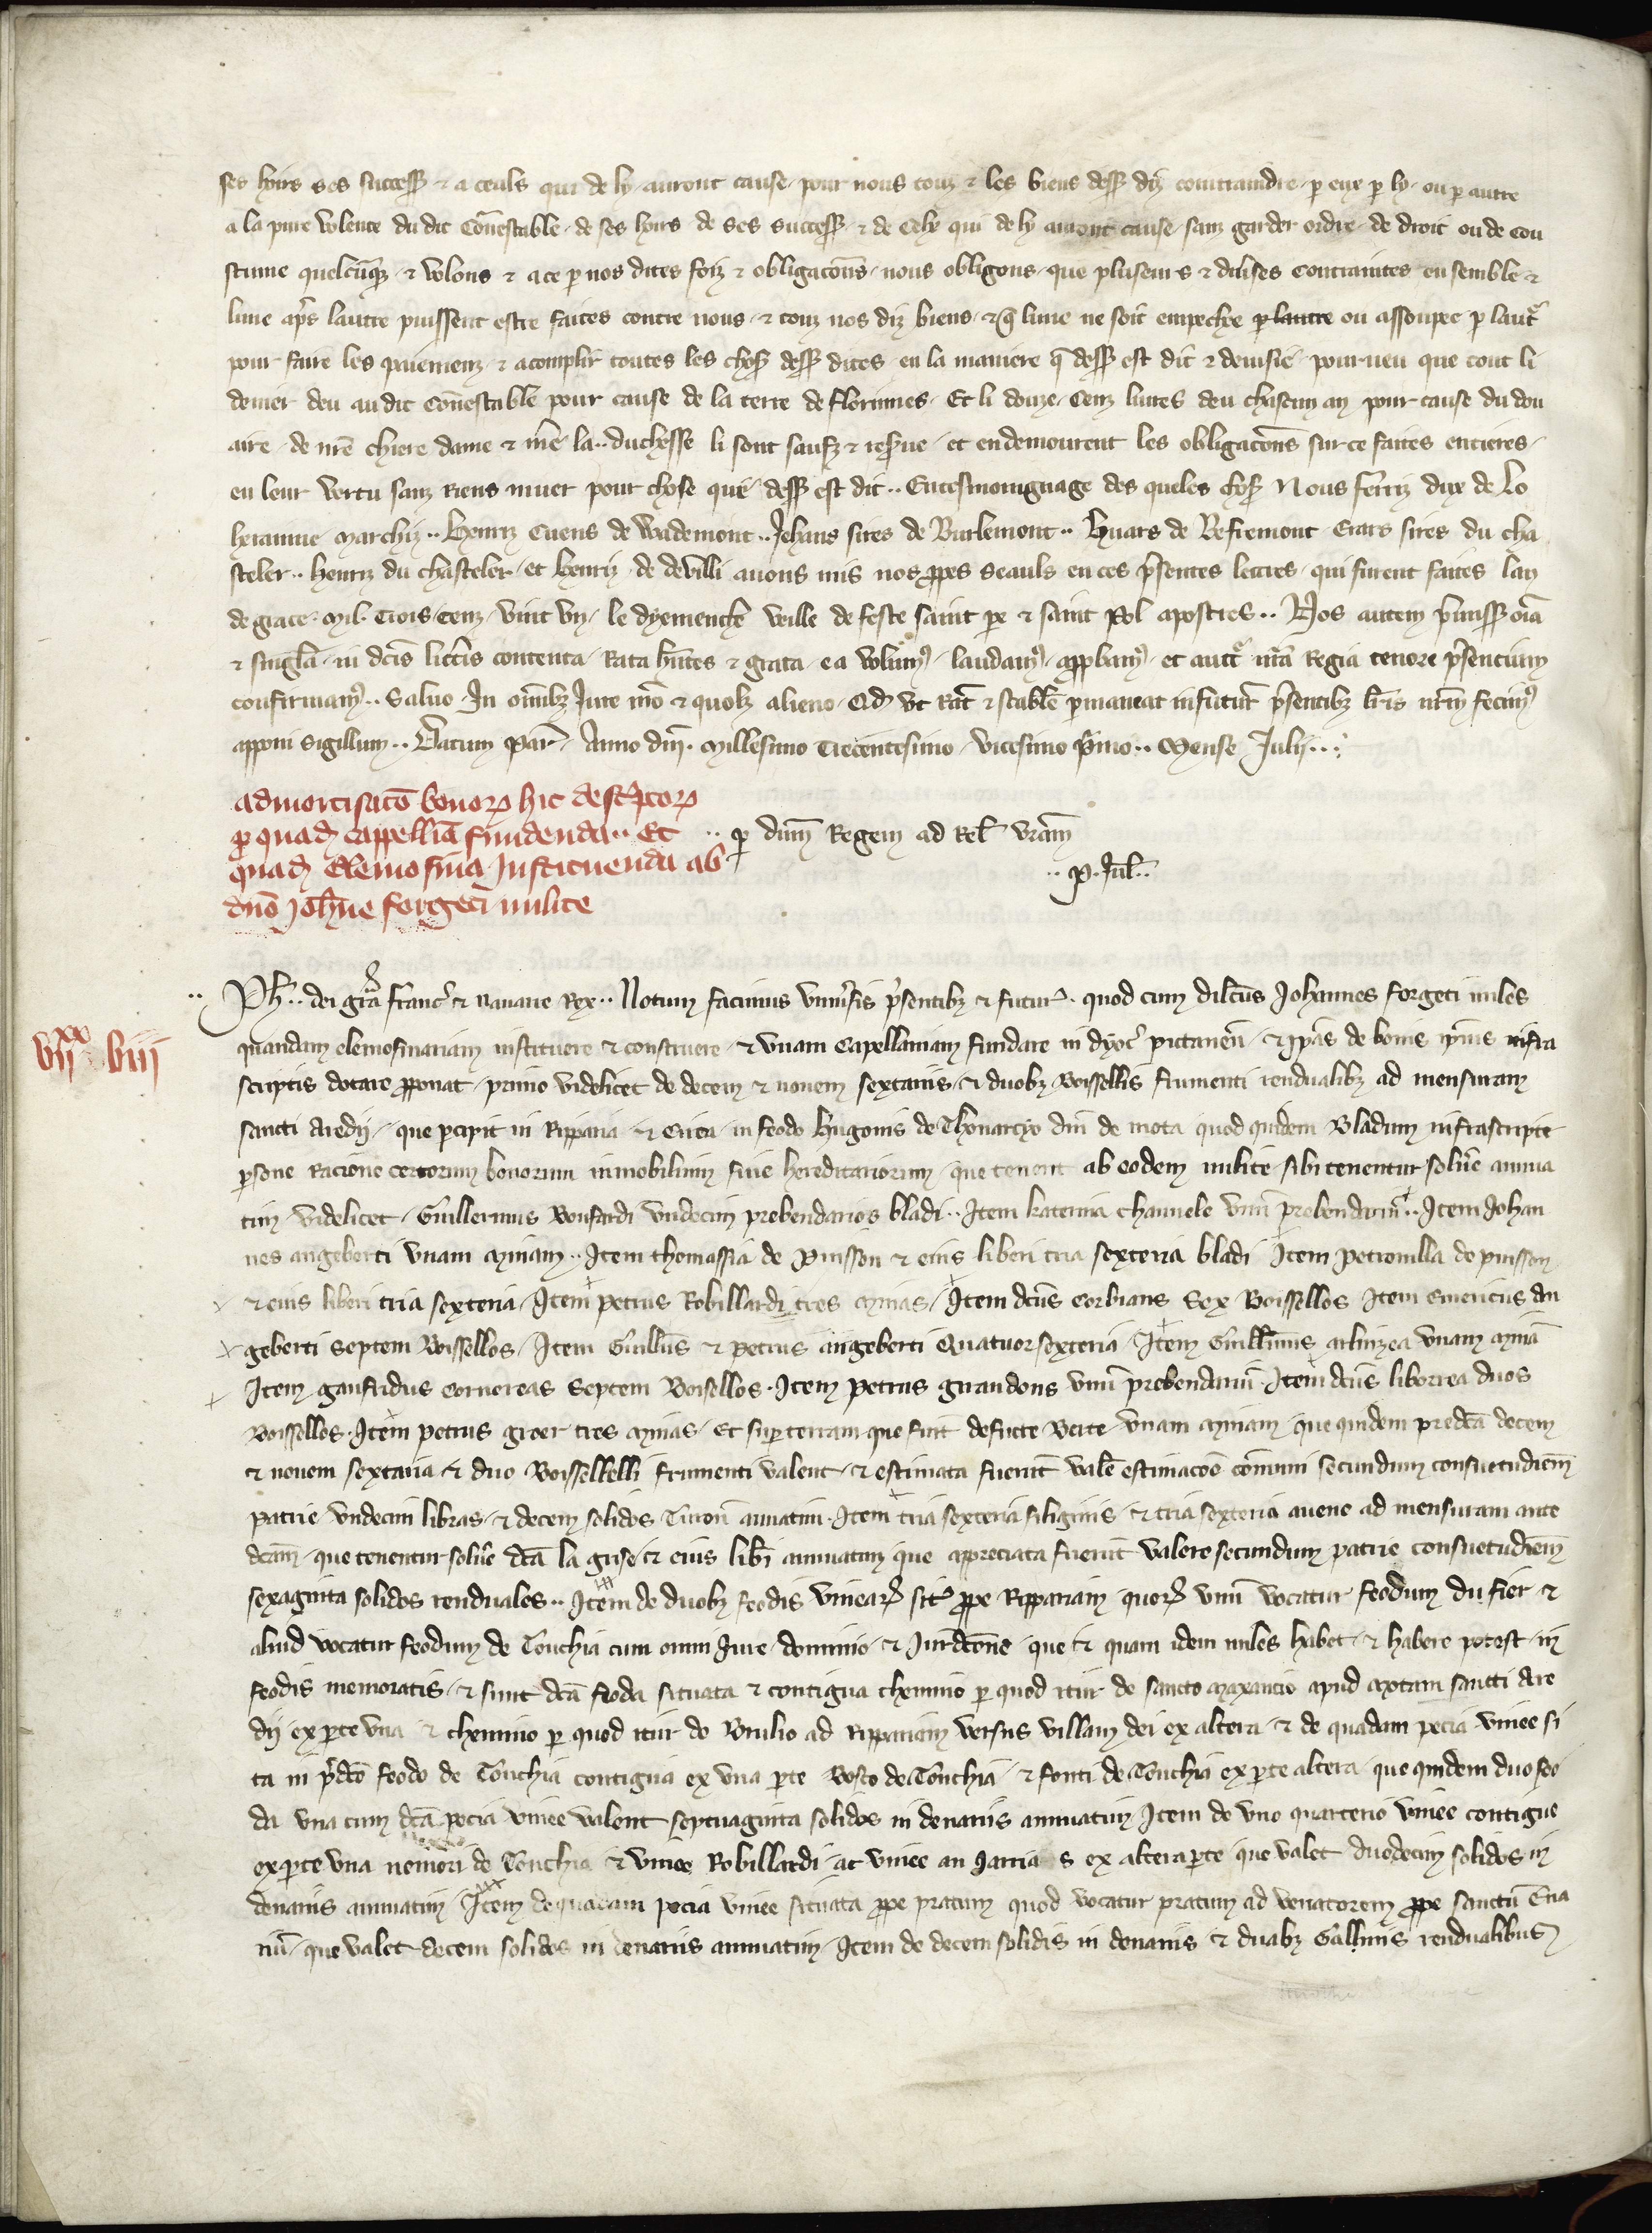 ses hoirs ses success⁊ ⁊ a ceuls qui de ly auront cause, pour nous touz ⁊ les biens dess⁊ diz contraindre, p eux p ly, ou p autre
a la pure volente du dit Conestable, de ses hoirs de ses success⁊ ⁊ de Cely qui de ly auront cause, sanz garder ordre, de droit ou de cou
stume quelcunq⁊ ⁊ volons ⁊ a ce p nos dites foiz ⁊ obligacons, nous obligons, que pluseurs ⁊ diuses contraintes ensemble ⁊
lune aps lautre puissent estre faites contre nous, ⁊ touz nos diz biens, ⁊ q lune ne soit empechee p lautre ou assoupee p laut
pour faire les paiemenz, ⁊ acomplir toutes les chos⁊ dess⁊ dites, en la maniere q dess⁊ est dit ⁊ deuisie, pourueu que tout li
denier deu au dit Conestable pour cause de la terre de florinnes, Et li douze Cenz liures deu chascun an pour cause du dou
aire, de nre chiere dame ⁊ mere la.. duchesse li sont saufz ⁊ reserue, et en demourent les obligacons sur ce faites entieres,
en leur vertu sanz Riens muer pour chose que dess⁊ est dit.. En tesmoingnage des queles chos⁊ Nous ferriz dux de Lo
herainne Marchiz.. Henriz Cuens de Wademont.. Jehans sires de Burlemont.. Huars de Befremont Erars sires du cha
steler.. Henriz du chasteler, et Henriz, de deuilli auons mis nos ppes seauls en ces psentes lettres, qui furent faites lan
de grace, Mil, Trois, Cenz, vint vn, le dyemenche veille de feste saint pe ⁊ saint Pol apostres.. Nos autem pmiss⁊ oia
⁊ singla, in dcis litteris contenta, Rata hntes ⁊ grata, ea volum⁹, laudam⁹, appbam⁹, et auct nra Regia tenore psencium
confirmam⁹.. Saluo, In oibz Jure nro ⁊ quolz alieno, Qd vt Rat ⁊ stabile pmaneat in futur psentibz lris nrm fecim⁹
apponi sigillum.. Datum Par, Anno dni, Millesimo Trecentesimo, vicesimo pmo.. Mense Julij...
admortisaco bonor⁊ hic descptor⁊
p quad cappellia fundenda.. Et
quad Elemosina Instituenda ab
dno Johne forgeti milite
.. p dnm Regem ad Rel vram
.. P. Jul..
.. Ph.. dei gra franc ⁊ Nauarre Rex.. Notum facimus vniusis psentibz ⁊ futur, quod cum dilcus Johannes forgeti miles
vijxx viij
quandam elemosinariam instituere ⁊ construere, ⁊ vnam Capellaniam fundare in dyoc pictauen, ⁊ ipas de bonis ipius infra
scriptis dotare pponat, primo videlicet de decem ⁊ nouem sextariis, ⁊ duobz Boissellis frumenti rendualibz ad mensuram
sancti Aredij, que pcipit in Ripparia ⁊ Circa, in feodo Hugonis de Thouarcyo dni de mota quod quidem Bladum infrascripte
psone Racione certorum bonorum inmobilium siue hereditariorum, que tenent ab eodem milite, sibi tenentur solue annua
tim, videlicet, Guillermus Bonfardi vndecim prebendarios bladi.. Item Katerina Chauuele vnu prebendariu.. Item Johan
nes angeberti vnam Minam.. Item thomassia de Puisson ⁊ eius liberi tria sexteria bladi Item Petronilla de puisson
⁊ eius liberi tria sexteria, Item petrus Robillardi tres Minas, Item dcus Corbians Sex Boissellos Item Emericus An
geberti Septem Boissellos, Item Guillus ⁊ Petrus angeberti Quatuor sexteria, Item Guillmus arbuizea vnam Mina
Item gaufridus Cornereas Septem Boisellos, Item Petrus guandons vnu prebendariu. Item dcus liborrea duos
Boissellos, Item petrus greer tres Minas, Et sup terram que fuit defucte Berte vnam Minam, que quidem predca decem
⁊ nouem sextaria ⁊ duo Boissellelli frumenti valent, ⁊ estimata fuerut vale estimacoe comuni secundum consuetudiem
patrie vndecim libras, ⁊ decem solidos Turon annuatim, Item tria sexteria siliginis, ⁊ tria sexteria auene ad mensuram ante
dcam, que tenentur solue dca la guse, ⁊ eius libi annuatim que appreciata fuerut valere secundum patrie consuetudiem
sexaginta solidos renduales.. Item de duobz feodis vinear⁊ sit ppe Rippariam quor⁊ vnu vocatur feodum du fier ⁊
aliud vocatur feodum de Touchia cum omni Jure, dominio, ⁊ Jurdcone, que ⁊ quam idem miles habet, ⁊ habere potest, in
feodis memoratis, ⁊ sunt dca feoda situata ⁊ contigua chemino p quod itur de sancto Maxancio apud Motam sancti Are
dij ex pte vna ⁊ chemino p quod itur de Brulio ad Rippariam versus villam dei ex altera, ⁊ de quadam pecia vinee si
ta in pdco feodo de Touchia contigua ex vna pte Bosco de Touchia ⁊ fonti de Touchia ex pte altera, que quidem duo feo
da vna cum dca pecia vinee valent septuaginta solidos in denariis annuatim, Item de vno quarterio vinee contigue
ex pte vna nemori de Touchia ⁊ vinee Robillardi, ac vinee au Jarria s ex altera pte que valet duodecim solidos in
denariis annuatim, Item de quadam pecia vinee situata ppe pratum quod vocatur pratum ad venatorem ppe sanctu Ena
nu, que valet decem solidos in denariis annuatim, Item de decem solidis in denariis ⁊ duabz Gallinis rendualibus